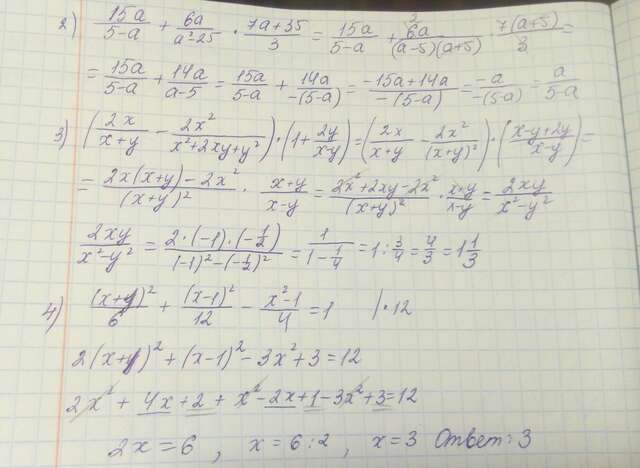 2) 15a/(5-a) + 6a/(a²-25) · (7a+35)/3 = 15a/(5-a) + 6a/((a-5)(a+5)) · 7(a+5)/3 =
= 15a/(5-a) + 14a/(a-5) = 15a/(5-a) + 14a/(-(5-a)) = (-15a+14a)/(-(5-a)) = -a/(-(5-a)) = a/(5-a)
3) (2x/(x+y) - 2x²/(x²+2xy+y²)) · (1+2y/(x-y)) = (2x/(x+y) - 2x²/(x+y)²) · ((x-y+2y)/(x-y)) =
= (2x(x+y)-2x²)/(x+y)² · (x+y)/(x-y) = (2x²+2xy-2x²)/(x+y)² · (x+y)/(x-y) = 2xy/(x²-y²)
2xy/(x²-y²) = (2·(-1)·(-1/2))/((-1)²-(-1/2)²) = 1/(1-1/4) = 1:3/4 = 4/3 = 1 1/3
4) (x+1)²/6 + (x-1)²/12 - (x²-1)/4 = 1 |·12
2(x+1)²+(x-1)²-3x²+3=12
2x²+4x+2+x²-2x+1-3x²+3=12
2x=6, x=6:2, x=3 Ответ: 3